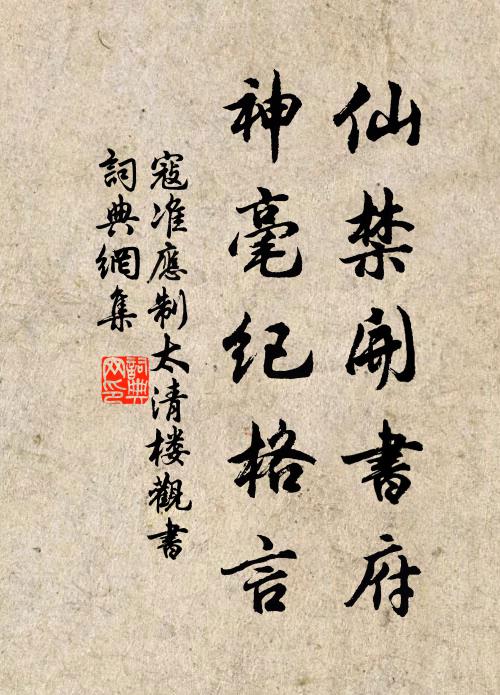 仙禁開書府
神毫纪格言
寇准應制太清楼觀書
詞典網集
詞典網印